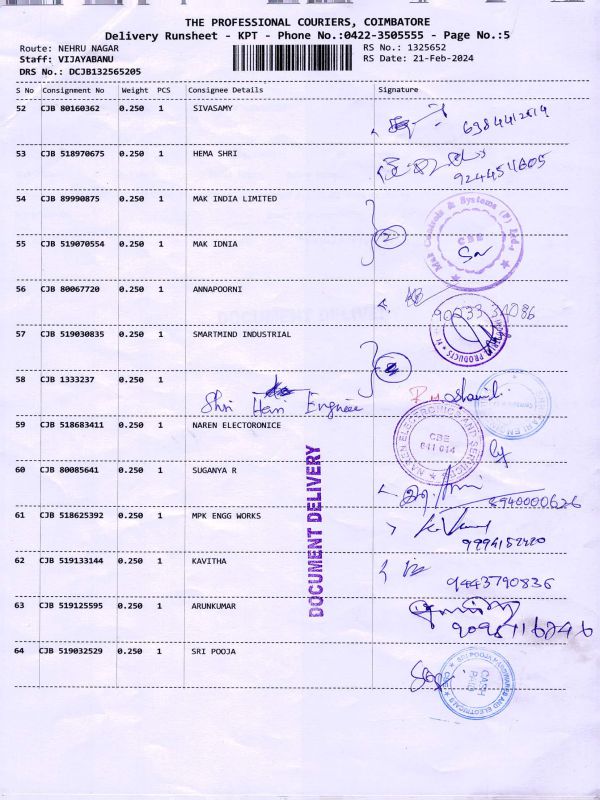 THE PROFESSIONAL COURIERS, COIMBATORE
Delivery Runsheet - KPT - Phone No.:0422-3505555 - Page No.:5
Route: NEHRU NAGAR RS No.: 1325652
Staff: VIJAYABANU RS Date: 21-Feb-2024
DRS No.: DCJB132565205
S No Consignment No Weight PCS Consignee Details Signature
52 CJB 80160362 0.250 1 SIVASAMY
53 CJB 518970675 0.250 1 HEMA SHRI
54 CJB 89990875 0.250 1 MAK INDIA LIMITED
55 CJB 519070554 0.250 1 MAK IDNIA
2
56 CJB 80067720 0.250 1 ANNAPOORNI
57 CJB 519030835 0.250 1 SMARTMIND INDUSTRIAL
58 CJB 1333237 0.250 1
Shri Hari Engineer
59 CJB 518683411 0.250 1 NAREN ELECTORONICE
NAREN ELECTRONIC
CBE
641 014
60 CJB 80085641 0.250 1 SUGANYA R
8940000626
61 CJB 518625392 0.250 1 MPK ENGG WORKS
62 CJB 519133144 0.250 1 KAVITHA
9443790836
63 CJB 519125595 0.250 1 ARUNKUMAR
64 CJB 519032529 0.250 1 SRI POOJA
DOCUMENT DELIVERY